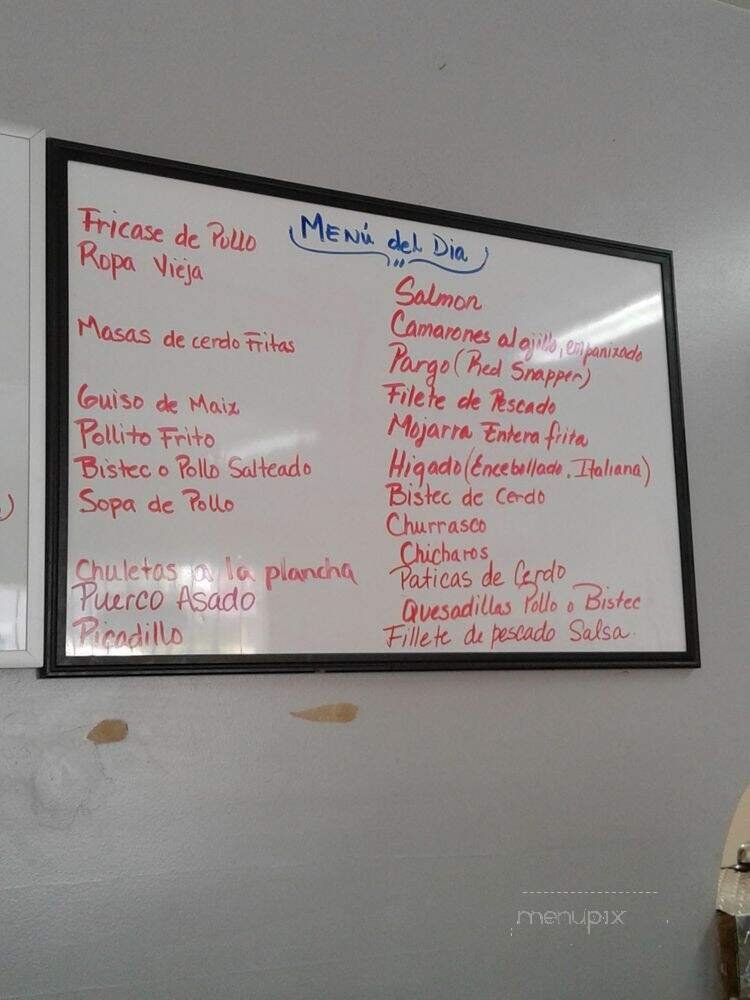 Menú del Dia
Fricase de Pollo
Ropa Vieja
Masas de cerdo Fritas
Guiso de Maiz
Pollito Frito
Bistec o Pollo Salteado
Sopa de Pollo
Chuletas a la plancha
Puerco Asado
Picadillo
Salmon
Camarones al ajillo, empanizado
Pargo (Red Snapper)
Filete de Pescado
Mojarra Entera frita
Higado (Encebollado. Italiana)
Bistec de Cerdo
Churrasco
Chicharos
Paticas de Cerdo
Quesadillas Pollo o Bistec
Fillete de pescado Salsa.
menupix